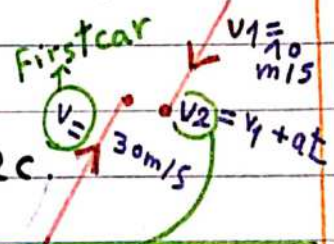 First car
v1 = 10
m/s
v
=
30m/s
v2 = v1 + at
c.